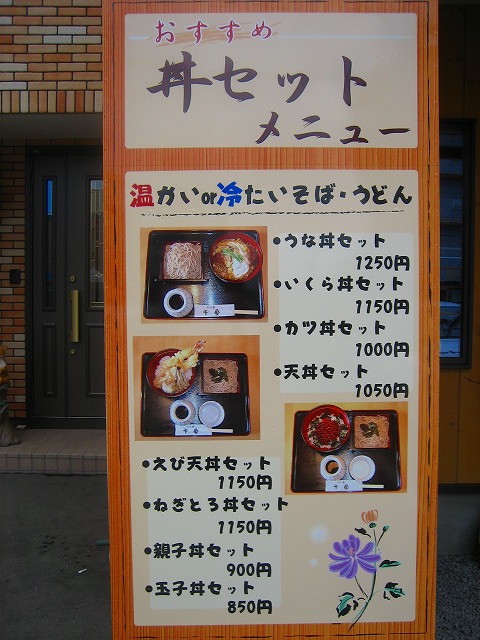 おすすめ
丼セット
メニュー
温かいor冷たいそば・うどん
•うな丼セット
1250円
•いくら丼セット
1150円
•カツ丼セット
1000円
•天丼セット
1050円
•えび天丼セット
1150円
•ねぎとろ丼セット
1150円
•親子丼セット
900円
•玉子丼セット
850円